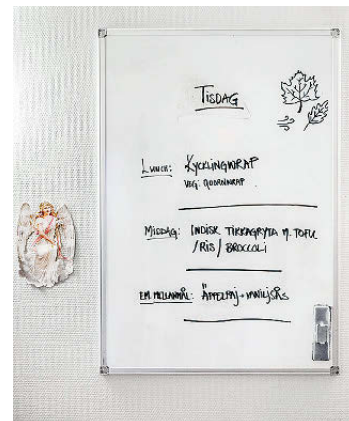 TISDAG
LUNCH: KYCKLINGWRAP
VEG: QUORNWRAP
MIDDAG: INDISK TIKKAGRYTA M. TOFU
/RIS/BROCCOLI
EM MELLANMÅL: ÄPPELPAJ+VANILJSÅS